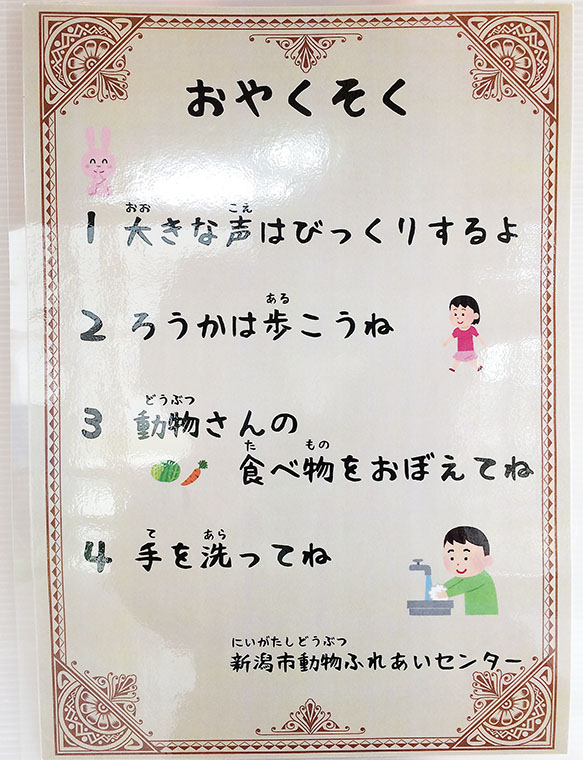 おやくそく
おお こえ
1 大きな声はびっくりするよ
ある
2 ろうかは歩こうね
どうぶつ
3 動物さんの
た もの
食べ物をおぼえてね
て あら
4 手を洗ってね
にいがたしどうぶつ
新潟市動物ふれあいセンター